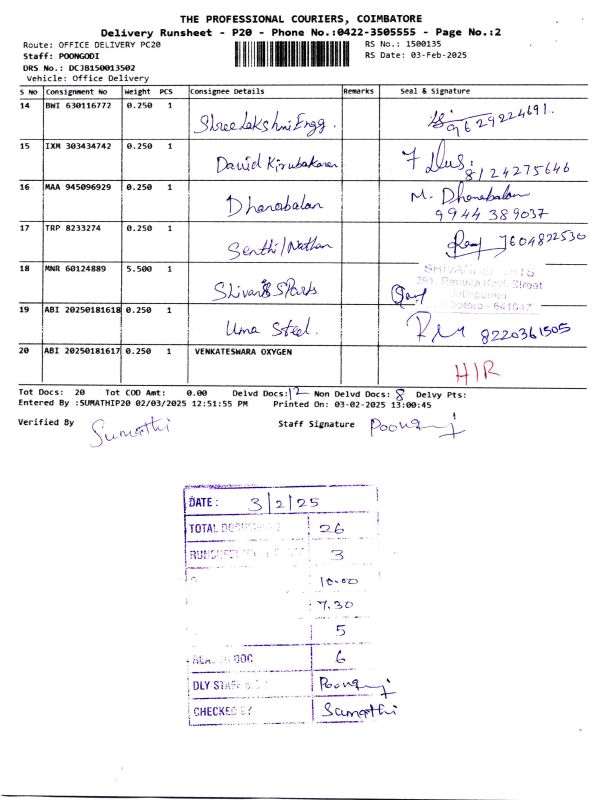 THE PROFESSIONAL COURIERS, COIMBATORE
Delivery Runsheet - P20 - Phone No.:0422-3505555 - Page No.:2
Route: OFFICE DELIVERY PC20
RS No.: 1500135
Staff: POONGODI
RS Date: 03-Feb-2025
DRS No.: DCJB150013502
Vehicle: Office Delivery
S No Consignment No Weight PCS Consignee Details Remarks Seal & Signature
14 BWI 630116772 0.250 1 Shree Lakshmi Engg. 9629224691.
15 IXM 303434742 0.250 1 David Kirubakaran 8124275646
16 MAA 945096929 0.250 1 Dhanabalan M. Dhanabalan
9944 389037
17 TRP 8233274 0.250 1 Senthil Nathan 7604822530
18 MNR 60124889 5.500 1 Shivani SParts
Street
19 ABI 20250181618 0.250 1 Uma Steel. 8220361505
20 ABI 20250181617 0.250 1 VENKATESWARA OXYGEN
H/R
Tot Docs: 20 Tot COD Amt: 0.00 Delvd Docs: 12 Non Delvd Docs: 8 Delvy Pts:
Entered By :SUMATHIP20 02/03/2025 12:51:55 PM Printed On: 03-02-2025 13:00:45
Verified By Sumathi Staff Signature
DATE: 3/2/25
TOTAL 26
3
10.00
7.30
5
DOC 6
DLY STAFF
CHECKED BY Sumathi